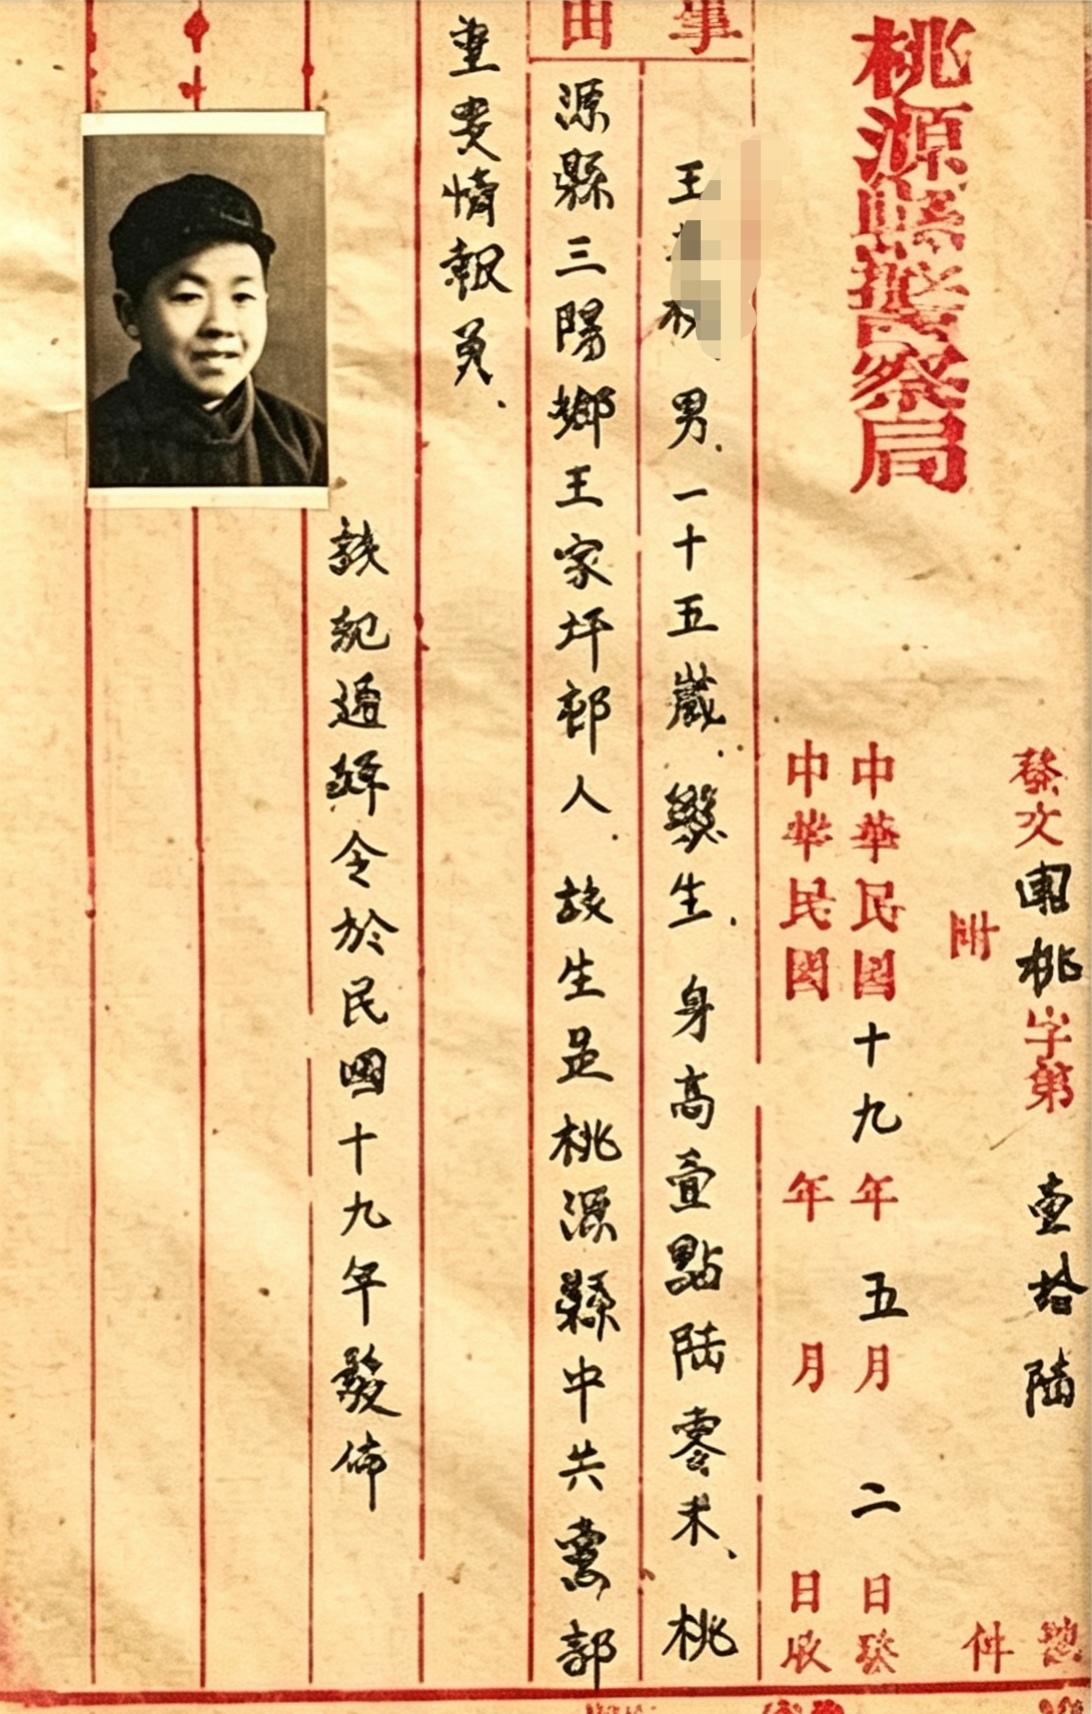 發文 團桃字第 壹拾陸 號
附 件
桃源縣警察局
中華民國十九年五月二日發
中華民國 年 月 日收
事由
王 男、一十五歲、學生、身高壹點陸零米、桃
源縣三陽鄉王家坪邨人.故生足桃源縣中共黨部
重要情報員、
該紀通緝令於民國十九年發佈